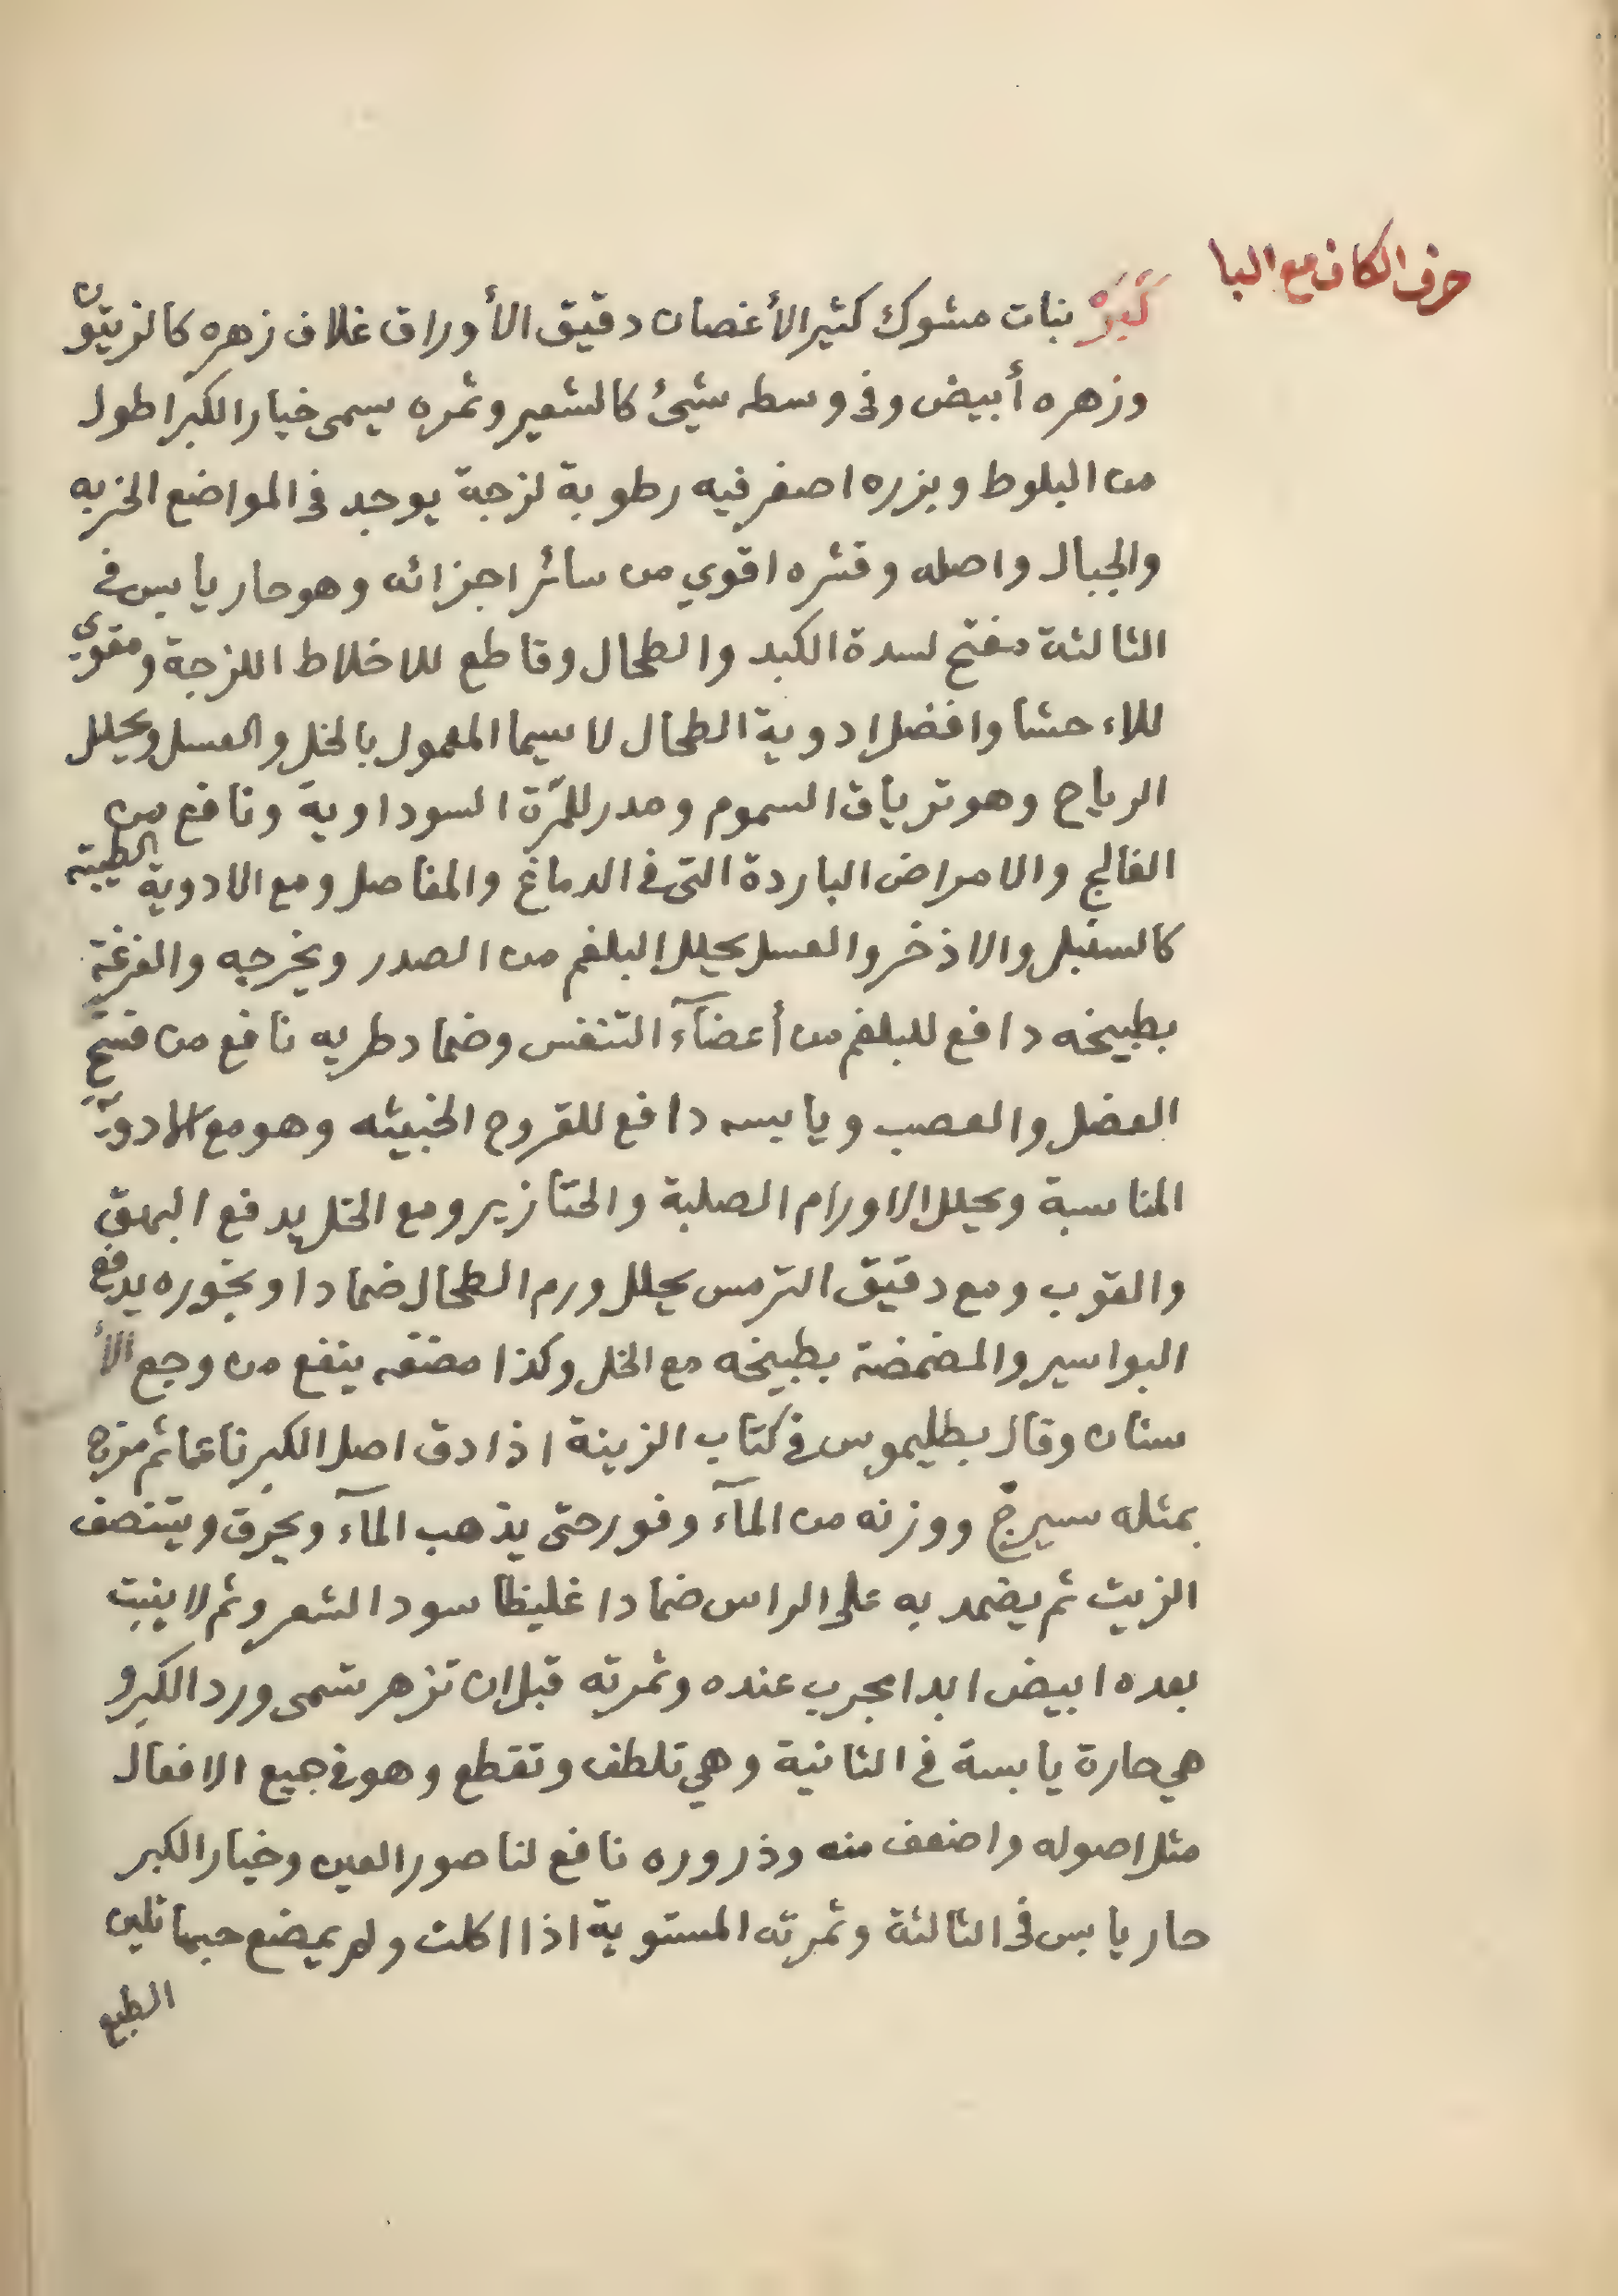 حرف الكاف مع البا
كَبَرْ نبات مشوك كثير الأغصان دقيق الأوراق غلاف زهره كالزيتون
وزهره أبيض وفى وسطه شيئ كالشعير وثمره يسمى خيار الكبر اطول
من البلوط وبزره اصفر فيه رطوبة لزجة يوجد فى المواضع الخربه
والجبال واصله وقشره اقوي من سائر اجزائه وهو حار يابس فى
الثالثة مفتح لسدة الكبد والطحال وقاطع للاخلاط اللزجة ومقوي
للاء حشا وافضل ادوية الطحال لا سيما المعمول بالخل والعسل ويحلل
الرياح وهو ترياق السموم ومدر للمرّة السوداوية ونافع من
الفالج والامراض الباردة التى فى الدماغ والمفاصل ومع الادوية الطيبة
كالسنبل والاذخر والعسل يحلل البلغم من الصدر ويخرجه والغرغرة
بطبيخه دافع للبلغم من أعضآء التنفس وضماد طريه نافع من فسخ
العضل والعصب ويابسه دافع للقروح الخبيثه وهو مع الادوية
المناسبة ويحلل الاورام الصلبة والخنازير ومع الخل يدفع البهق
والقوب ومع دقيق الترمس يحلل ورم الطحال ضمادا وبخوره يدفع
البواسير والمضمضة بطبيخه مع الخل وكذا مضغه ينفع من وجع الأ
سنان وقال بطليموس فى كتاب الزينة اذا دق اصل الكبر ناعما ثم مزج
بمثله سيرج ووزنه من المآء وفور حتى يذهب المآء ويحرق ويتنصف
الزيت ثم يضمد به على الراس ضمادا غليظا سود الشعر وثم لا ينبت
بعده ابيض ابدا مجرب عنده وثمرته قبل ان تزهر تسمى ورد الكبر و
هي حارة يابسة فى الثانية وهي تلطف وتقطع وهو فى جميع الافعال
مثل اصوله واضعف منه وذروره نافع لناصور العين وخيار الكبر
حار يابس فى الثالثة وثمرته المستوية اذا اكلت ولم يمضغ حبها تلين
الطبع